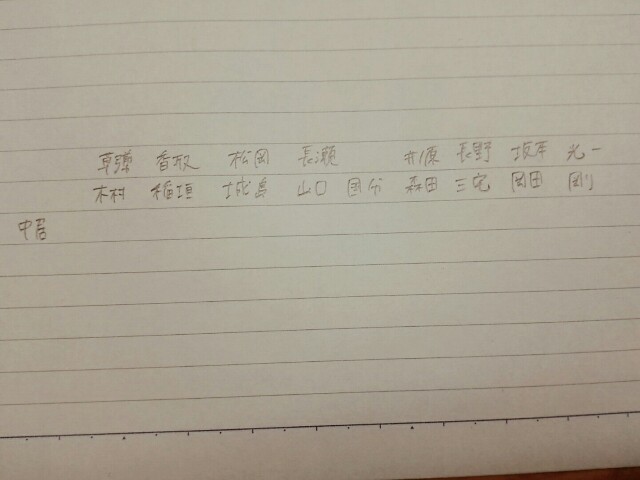 草彅 香取 松岡 長瀬 井ノ原 長野 坂本 光一
木村 稲垣 城島 山口 国分 森田 三宅 岡田 剛
中居